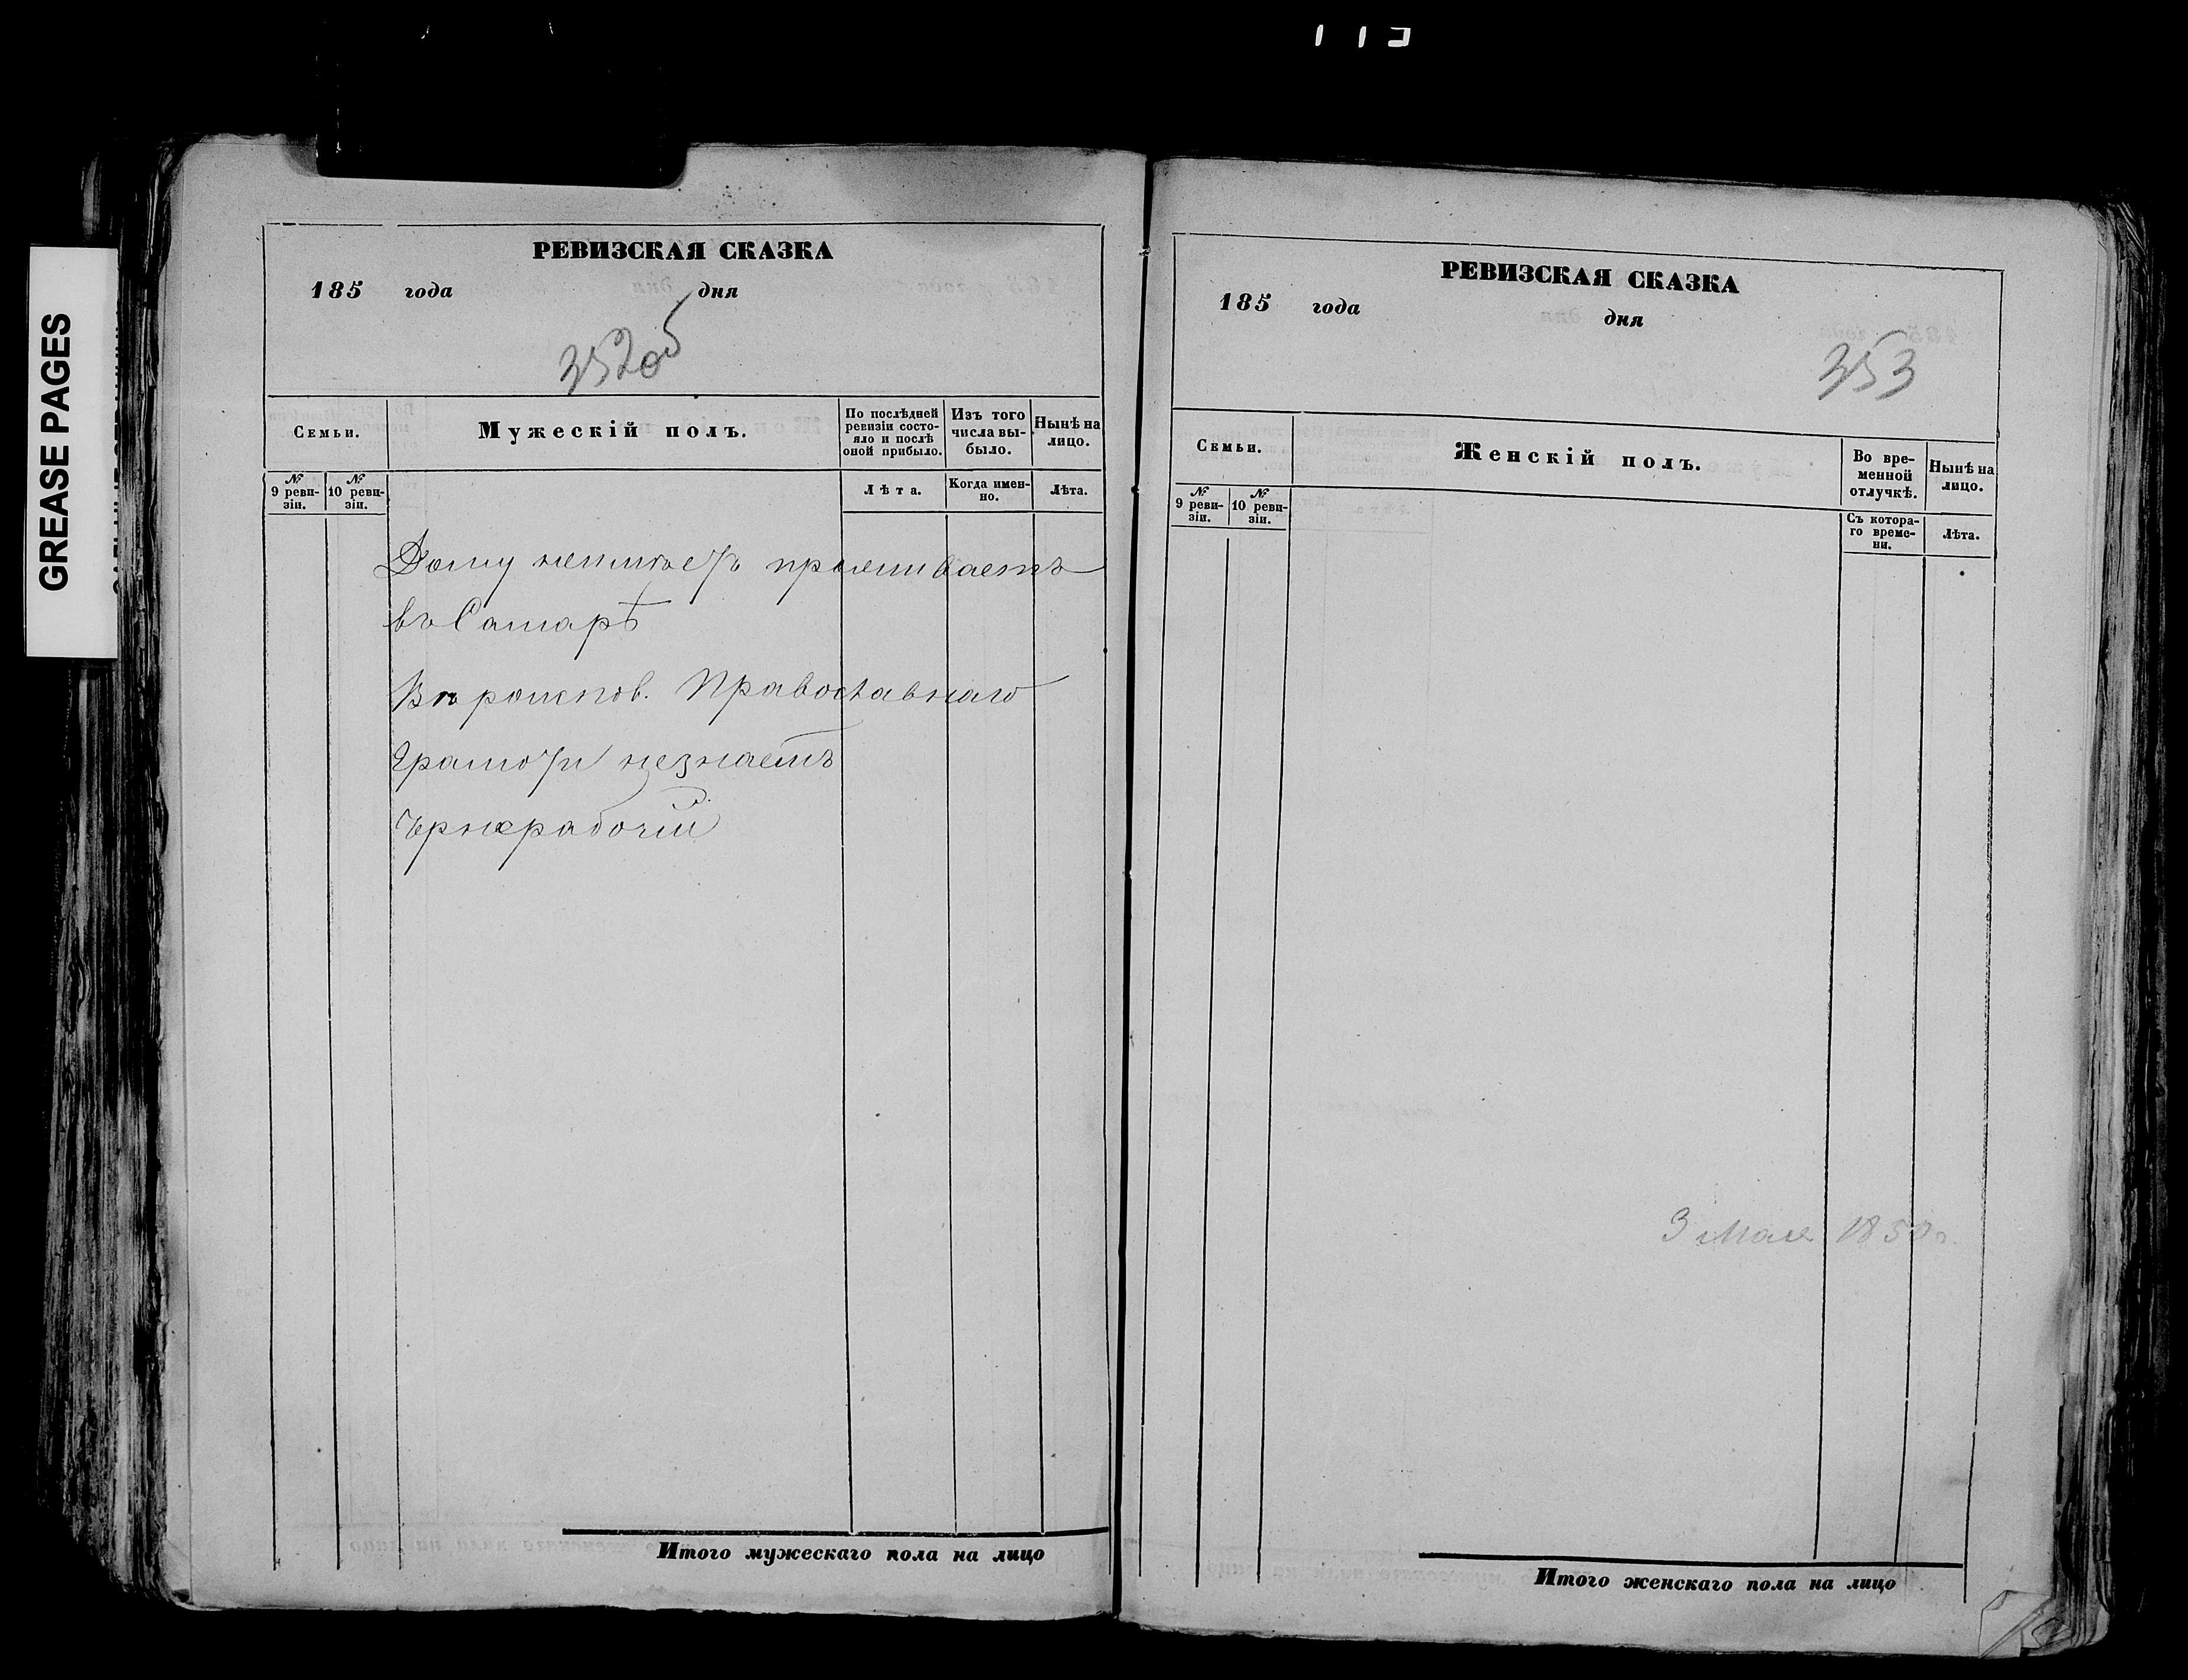 GREASE PAGES
РЕВИЗСКАЯ СКАЗКА
185 года дня
352 об
Семьи.
Мужескій полъ.
По послѣдней ревизіи состо-
яло и послѣ
оной прибыло.
Изъ того
числа вы-
было.
Нынѣ на
лицо.
№
9 реви-
зіи.
№
10 реви-
зіи.
Лѣта.
Когда имен-
но.
Лѣта.
Дому неимѣетъ проживаетъ
въ Самарѣ
Вѣроиспов. Православнаго
Грамоти незнаетъ
Чрнорабочій
Итого мужескаго пола на лицо
РЕВИЗСКАЯ СКАЗКА
185 года дня
353
Семьи.
Женскій полъ.
Во вре-
менной
отлучкѣ.
Нынѣ на
лицо.
№
9 реви-
зіи.
№
10 реви-
зіи.
Съ котора-
го време-
ни.
Лѣта.
3 Мая 1858 г.
Итого женскаго пола на лицо